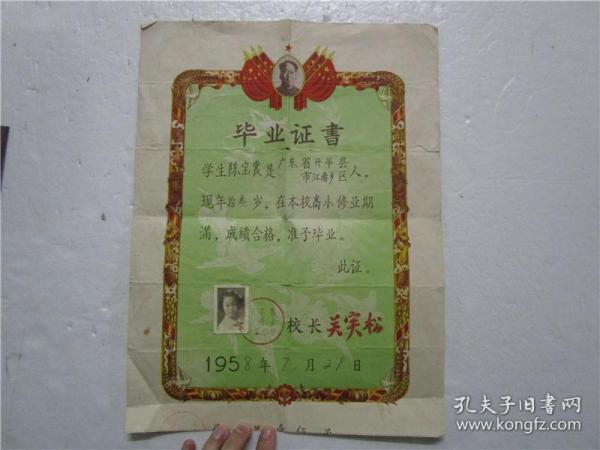 毕业证書
学生陈宝裳是广东省开平县
市江南乡区人，
现年拾叁岁，在本校高小修业期
满，成绩合格，准予毕业。
此证。
校长关实松
1958年7月21日
孔夫子旧書网
www.kongfz.com